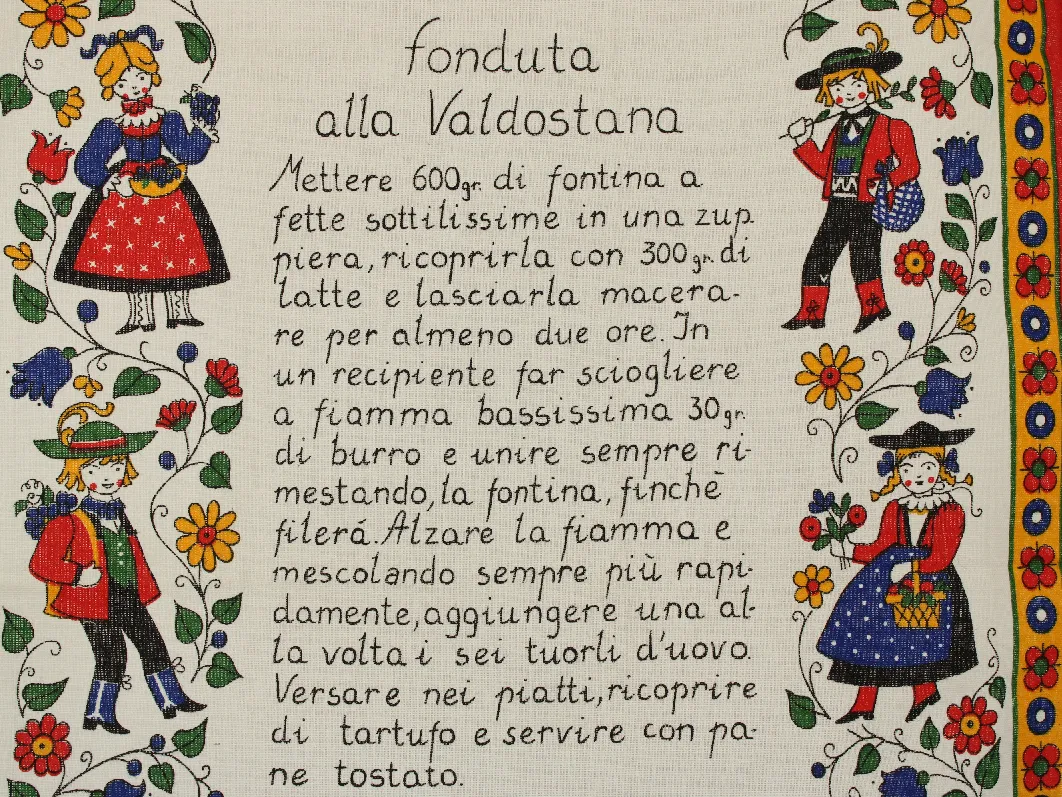 fonduta
alla Valdostana
Mettere 600gr. di fontina a
fette sottilissime in una zup
piera, ricoprirla con 300gr. di
latte e lasciarla macera-
re per almeno due ore. In
un recipiente far sciogliere
a fiamma bassissima 30gr.
di burro e unire sempre ri-
mestando, la fontina, finchè
filerá. Alzare la fiamma e
mescolando sempre più rapi-
damente, aggiungere una al-
la volta i sei tuorli d'uovo.
Versare nei piatti, ricoprire
di tartufo e servire con pa-
ne tostato.